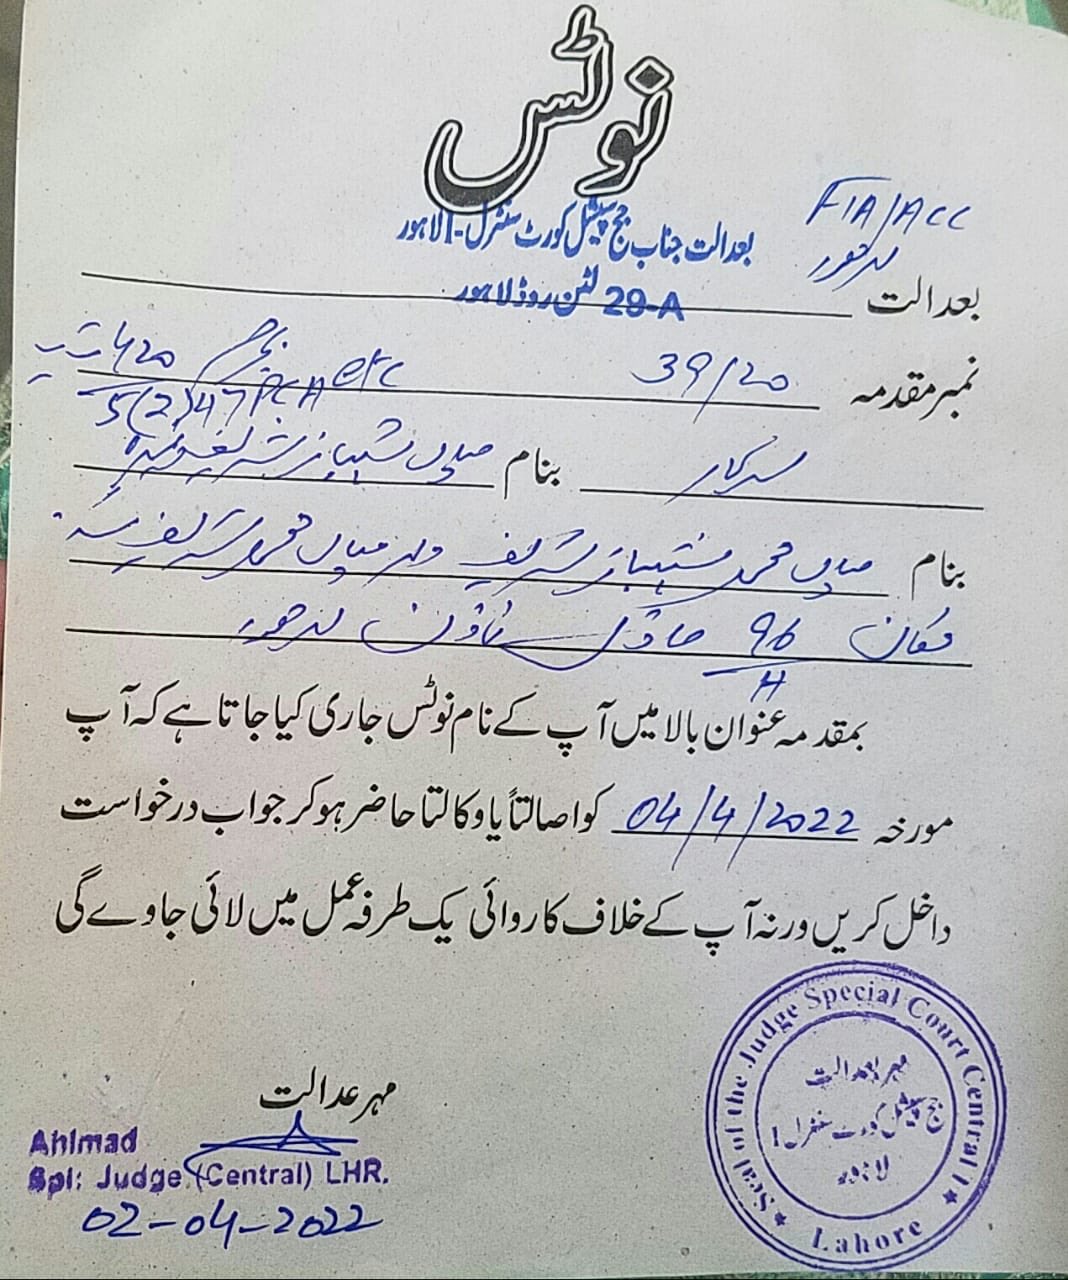 نوٹس
FIA/ACC
لاہور
بعدالت جناب جج سپیشل کورٹ سنٹرل-I لاہور
بعدالت
29-A لٹن روڈ لاہور
نمبر مقدمہ 39/20 بجرم 420
5(2)47 PCA etc
سرکار بنام میاں شہباز شریف وغیرہ
بنام میاں محمد شہباز شریف ولد میاں محمد شریف سکنہ
مکان 96/H ماڈل ٹاؤن لاہور
بمقدمہ عنوان بالا میں آپ کے نام نوٹس جاری کیا جاتا ہے کہ آپ
مورخہ 04/4/2022 کو اصالتاً یا وکالتا حاضر ہو کر جواب درخواست
داخل کریں ورنہ آپ کے خلاف کاروائی یک طرفہ عمل میں لائی جاوے گی
مہر عدالت
Ahlmad
Spl: Judge (Central) LHR.
02-04-2022
Seal of the Judge Special Court Central I
Lahore
مہر بعدالت
جج سپیشل کورٹ سنٹرل I
لاہور